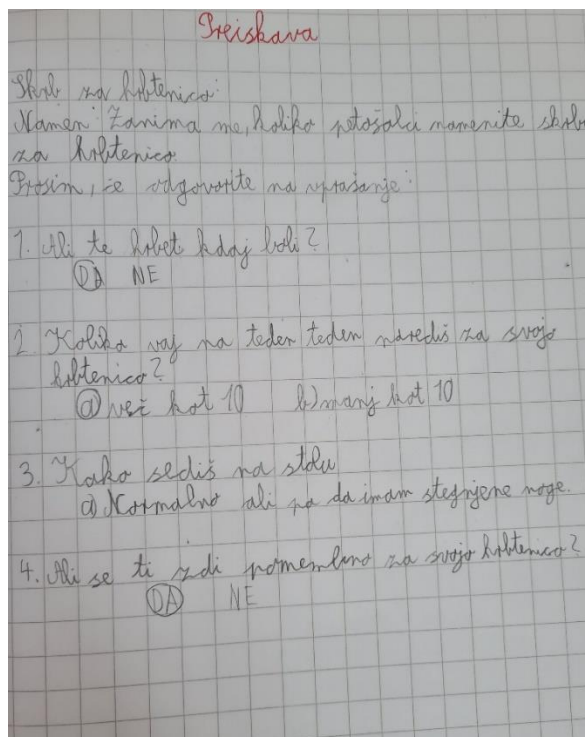 Preiskava
Skrb za hrbtenico:
Namen: Zanima me, koliko petošolci namenite skrb
za hrbtenico
Prosim, če odgovorite na vprašanje:
1. Ali te hrbet kdaj boli?
DA NE
2. Koliko vaj na teden teden narediš za svojo
hrbtenico?
a) več kot 10 b) manj kot 10
3. Kako sediš na stolu
a) Normalno ali pa da imam stegnjene noge.
4. Ali se ti zdi pomembno za svojo hrbtenico?
DA NE